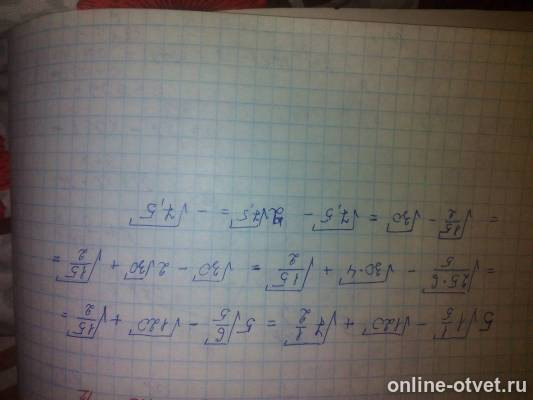 5√1 1/5 - √120 + √7 1/2 = 5√6/5 - √120 + √15/2 =
= √25·6/5 - √30·4 + √15/2 = √30 - 2√30 + √15/2 =
= √15/2 - √30 = √7,5 - 2√7,5 = - √7,5
online-otvet.ru